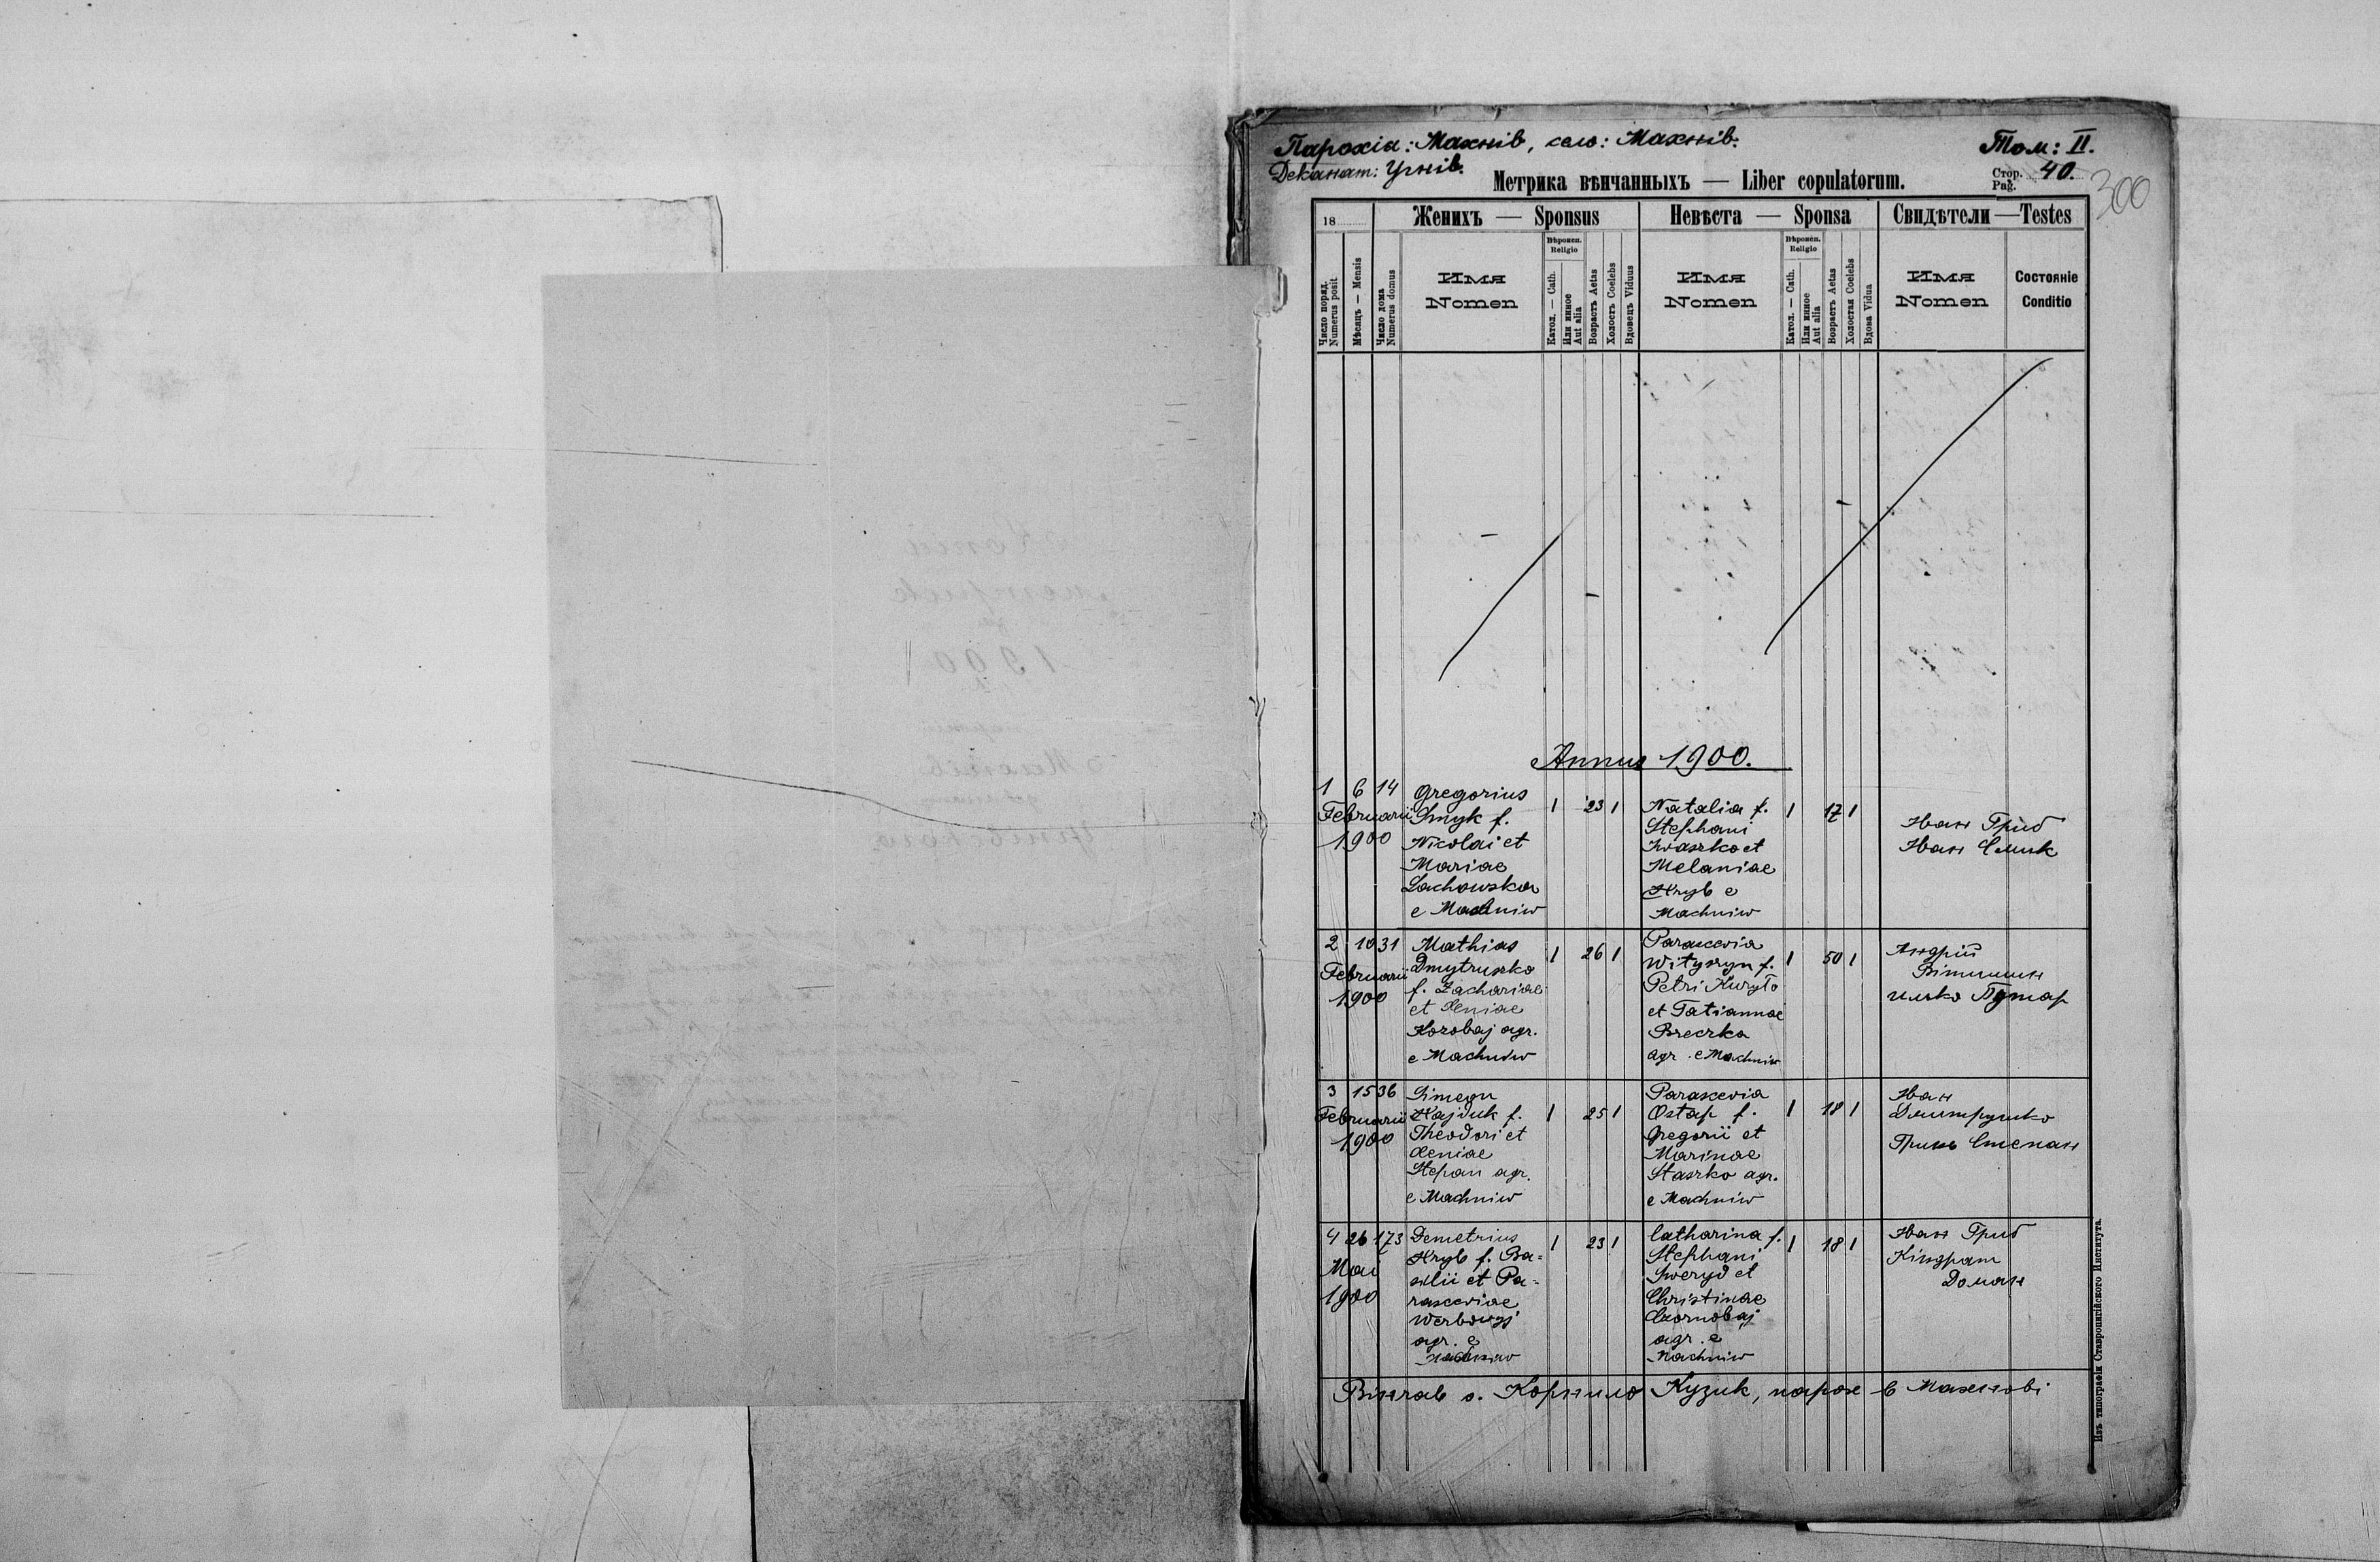 Парохія: Махнів, село: Махнів.
Том: II.
Деканат: Угнів.
Метрика вѣнчанныхъ — Liber copulatorum.
Стор. Pag. 40.
300
18
Женихъ — Sponsus
Невѣста — Sponsa
Свидѣтели — Testes
Число поряд. Numerus posit
Мѣсяцъ — Mensis
Число дома Numerus domus
Имя Nomen
Вѣроисп. Religio
Катол. — Cath.
Или инное Aut alia
Возрастъ Aetas
Холостъ Coelebs
Вдовецъ Viduus
Имя Nomen
Вѣроисп. Religio
Катол. — Cath.
Или инное Aut alia
Возрастъ Aetas
Холостая Coelebs
Вдова Vidua
Имя Nomen
Состояніе Conditio
Annus 1900.
1 6 14
Februarii
1900
Gregorius
Smyk f.
Nicolai et
Mariae
Lachowska
e Machniw
1 23 1
Natalia f.
Stephani
Iwaszko et
Melaniae
Hryb e
Machniw
1 17 1
Иван Гриб
Иван Смик
2 10 31
Februarii
1900
Mathias
Dmytruszko
f. Zachariae
et Xeniae
Korobaj agr.
e Machniw
1 26 1
Parascevia
Wityszyn f.
Petri Kuryło
et Tatiannae
Breczka
agr. e Machniw
1 50 1
Андрій
Вітишин
Илько Путар
3 15 36
Februarii
1900
Simeon
Hajduk f.
Theodori et
Xeniae
Stepan agr.
e Machniw
1 25 1
Parascevia
Ostap f.
Gregorii et
Marinae
Staszko agr.
e Machniw
1 18 1
Иван
Дмитрушко
Гринь Степан
4 26 173
Mai
1900
Demetrius
Hryb f. Ba-
silii et Pa-
rasceviae
Werbowyj
agr. e
Machniw
1 23 1
Catharina f.
Stephani
Sweryd et
Christinae
Czornobaj
agr. e
Machniw
1 18 1
Иван Гриб
Кіндрат
Доман
Вінчав о. Корнило Кузик, парох в Махнові
Изъ типографіи Ставропигійского Института.